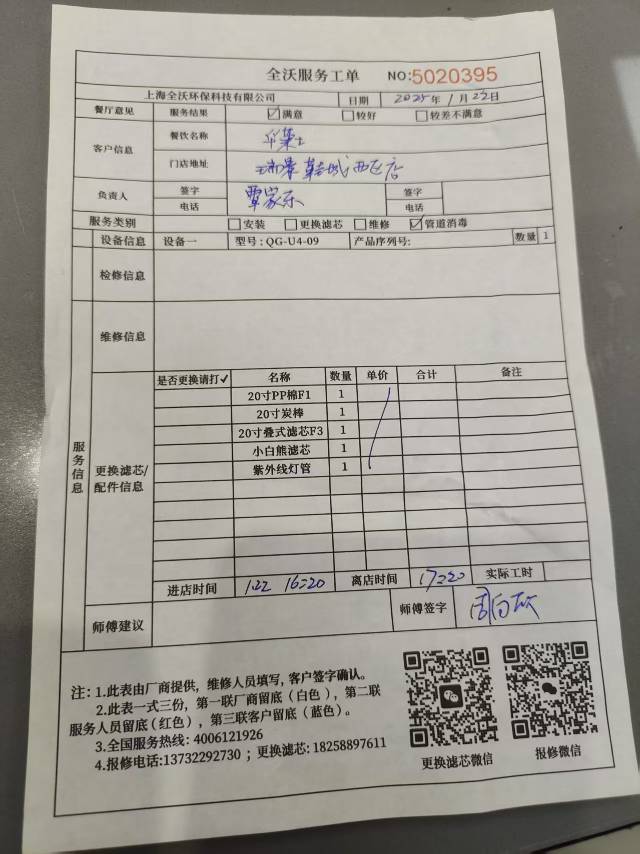 全沃服务工单 NO:5020395
上海全沃环保科技有限公司 日期 2025年1月22日
餐厅意见 服务结果 ☑满意 □较好 □较差不满意
客户信息 餐饮名称 华莱士
门店地址 瑞景 西区店
负责人 签字 覃家乐 签字
电话 电话
服务类别 □安装 □更换滤芯 □维修 ☑管道消毒
设备信息 设备一 型号:QG-U4-09 产品序列号: 数量 1
检修信息
维修信息
服务信息
更换滤芯/配件信息
是否更换请打✓ 名称 数量 单价 合计 备注
20寸PP棉F1 1
20寸炭棒 1
20寸叠式滤芯F3 1
小白熊滤芯 1
紫外线灯管 1
进店时间 1.22 16:20 离店时间 17:20 实际工时
师傅建议 师傅签字
注: 1.此表由厂商提供，维修人员填写，客户签字确认。
2.此表一式三份，第一联厂商留底（白色），第二联
服务人员留底(红色），第三联客户留底（蓝色）。
3.全国服务热线: 4006121926
4.报修电话:13732292730 ；更换滤芯: 18258897611
更换滤芯微信 报修微信